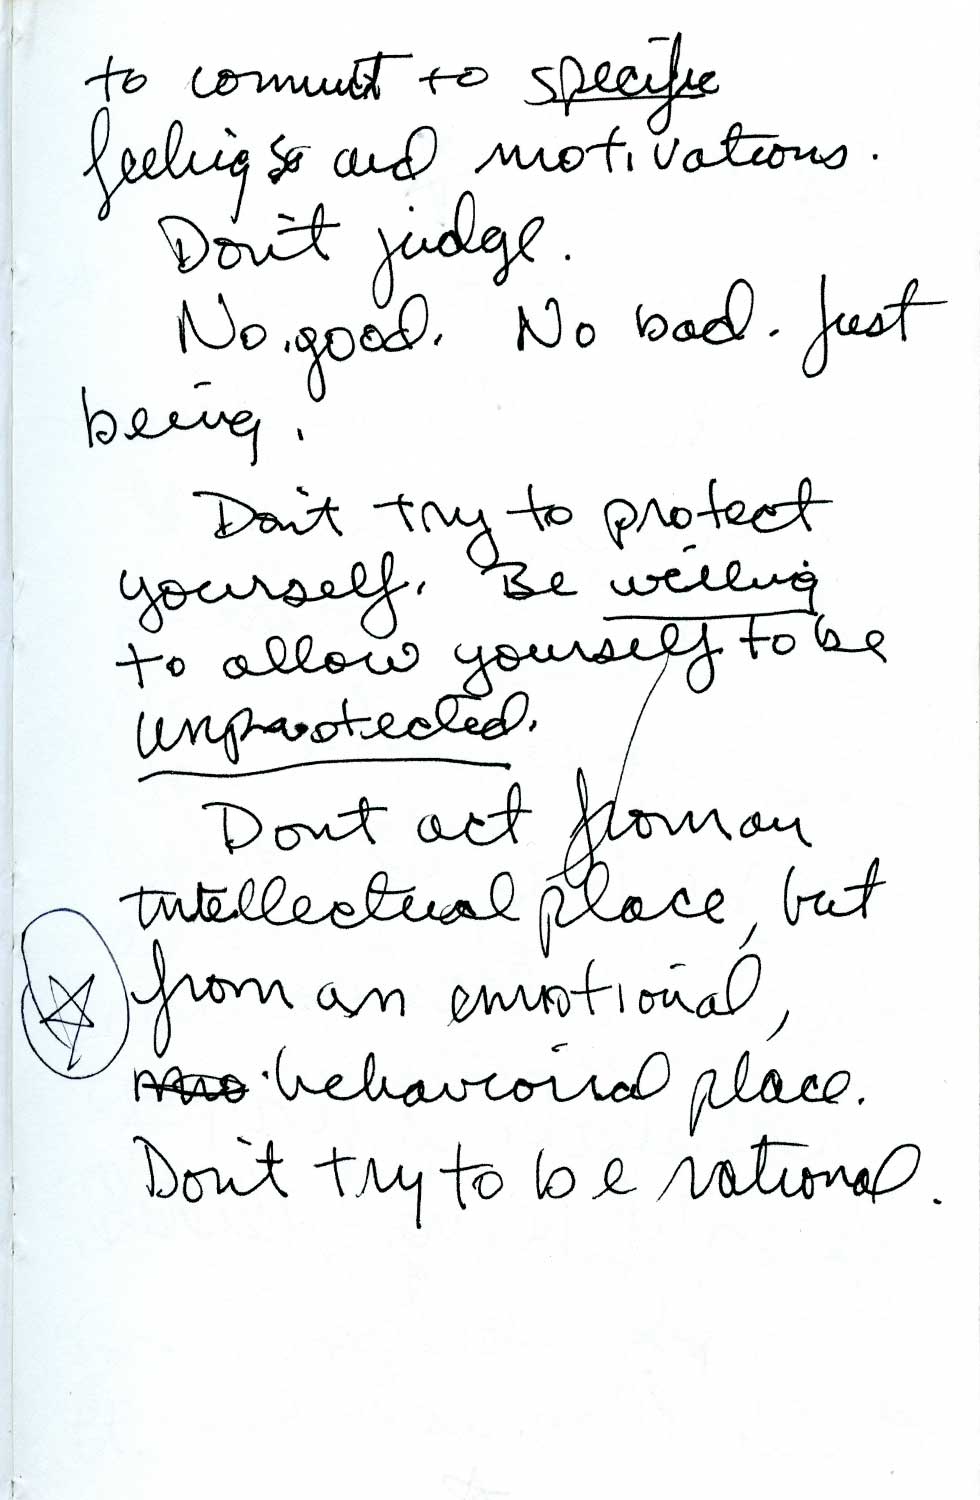 to commit to specific
feelings and motivations.
Don't judge.
No good. No bad. Just
being.
Don't try to protect
yourself. Be willing
to allow yourself to be
unprotected.
Dont act from an
intellectual place, but
from an emotional,
behavioral place.
Don't try to be rational.